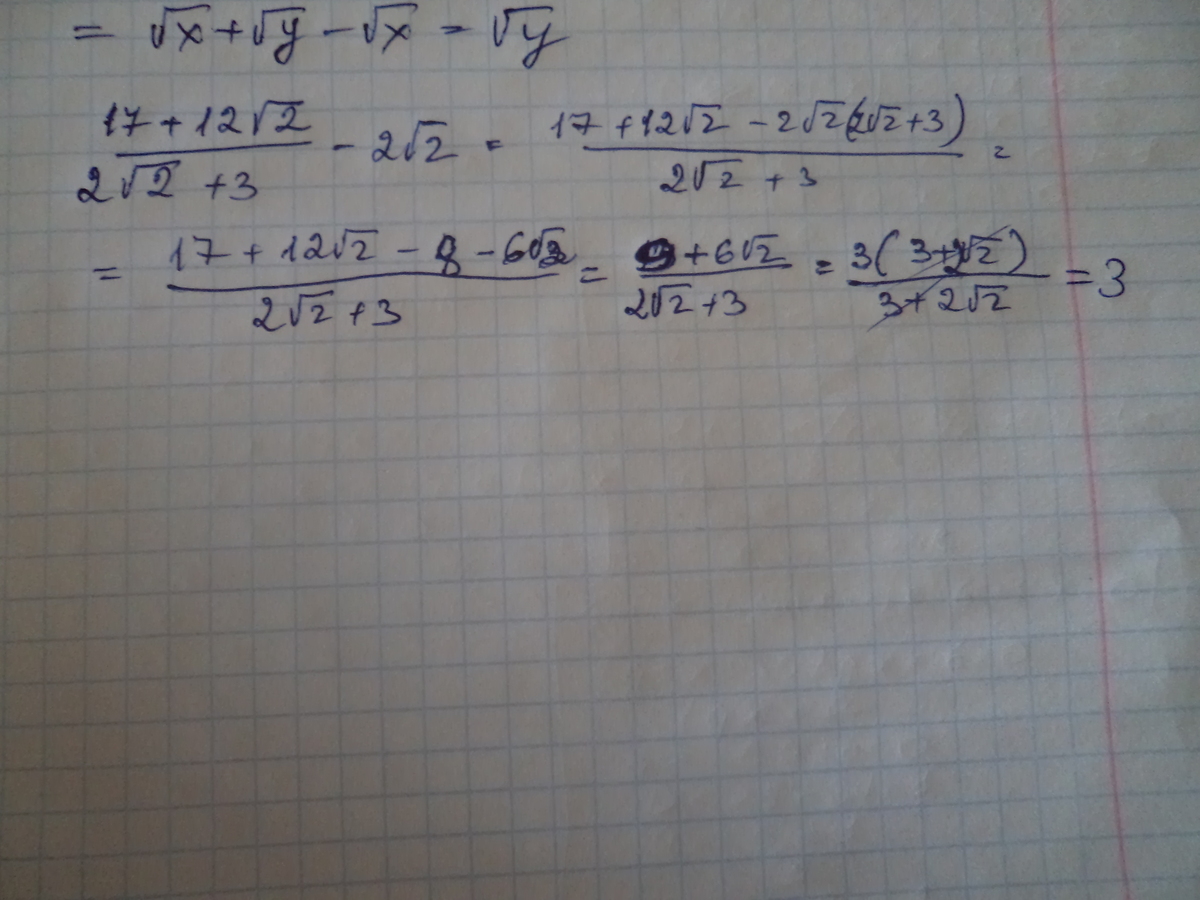 = √x + √y - √x = √y
(17 + 12√2)/(2√2 + 3) - 2√2 = (17 + 12√2 - 2√2(2√2 + 3))/(2√2 + 3) =
= (17 + 12√2 - 8 - 6√2)/(2√2 + 3) = (9 + 6√2)/(2√2 + 3) = (3(3 + 2√2))/(3 + 2√2) = 3